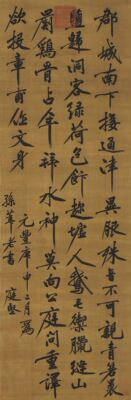 郡城南下接通津異服殊音不可親青箬裹
鹽歸洞客綠荷包飰趂墟人鵞毛禦臘縫山
罽鷄骨占年拜水神莫向公庭問重譯
欲投章甫作文身
元豐庚申三月為
孫莘老書 庭堅